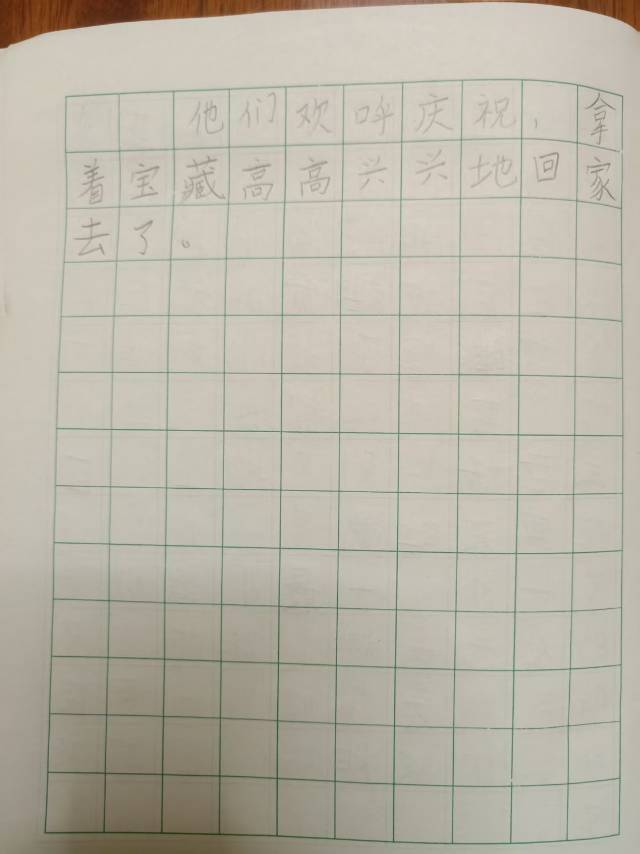 他们欢呼庆祝，拿
着宝藏高高兴兴地回家
去了。